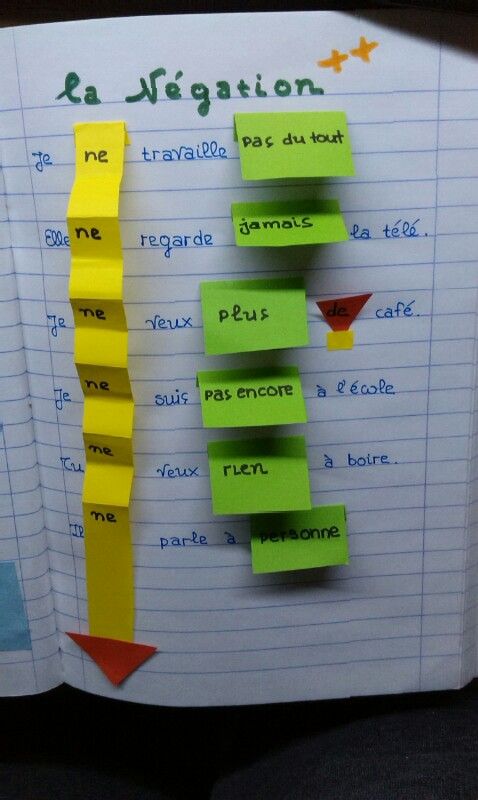 la Négation ++
Je ne travaille pas du tout
Elle ne regarde jamais la télé.
Je ne veux plus de café.
Je ne suis pas encore à l'école
Tu ne veux rien à boire.
Il ne parle à personne